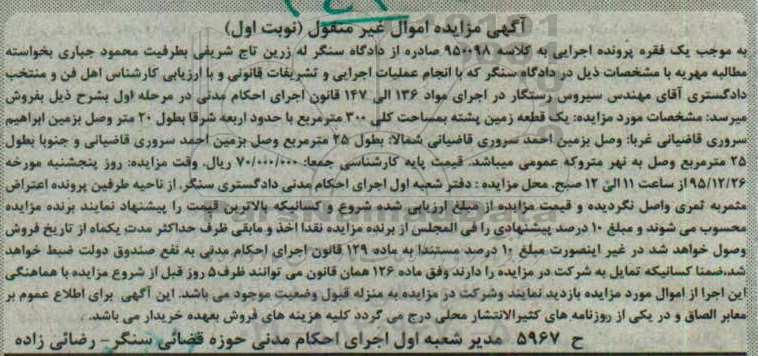 آگهی مزایده اموال غیر منقول (نوبت اول)
به موجب یک فقره پرونده اجرایی به کلاسه ۹۵۰۰۹۸ صادره از دادگاه سنگر له زرین تاج شریفی بطرفیت محمود جباری بخواسته
مطالبه مهریه با مشخصات ذیل در دادگاه سنگر که با انجام عملیات اجرایی و تشریفات قانونی و با ارزیابی کارشناس اهل فن و منتخب
دادگستری آقای مهندس سیروس رستگار در اجرای مواد ۱۳۶ الی ۱۴۷ قانون اجرای احکام مدنی در مرحله اول بشرح ذیل بفروش
میرسد: مشخصات مورد مزایده: یک قطعه زمین پشته بمساحت کلی ۳۰۰ مترمربع با حدود اربعه شرقا بطول ۲۰ متر وصل بزمین ابراهیم
سروری قاضیانی غربا: وصل بزمین احمد سروری قاضیانی شمالا: بطول ۲۵ مترمربع وصل بزمین احمد سروری قاضیانی و جنوبا بطول
۲۵ مترمربع وصل به نهر متروکه عمومی میباشد. قیمت پایه کارشناسی جمعا: ۷۰/۰۰۰/۰۰۰ ریال. وقت مزایده: روز پنجشنبه مورخه
۹۵/۱۲/۲۶ از ساعت ۱۱ الی ۱۲ صبح. محل مزایده : دفتر شعبه اول اجرای احکام مدنی دادگستری سنگر. از ناحیه طرفین پرونده اعتراض
مثمربه ثمری واصل نگردیده و قیمت مزایده از مبلغ ارزیابی شده شروع و کسانیکه بالاترین قیمت را پیشنهاد نمایند برنده مزایده
محسوب می شوند و مبلغ ۱۰ درصد پیشنهادی را فی المجلس از برنده مزایده نقدا اخذ و مابقی ظرف حداکثر مدت یکماه از تاریخ فروش
وصول خواهد شد در غیر اینصورت مبلغ ۱۰ درصد مستندا به ماده ۱۲۹ قانون اجرای احکام مدنی به نفع صندوق دولت ضبط خواهد
شد.ضمنا کسانیکه تمایل به شرکت در مزایده را دارند وفق ماده ۱۲۶ همان قانون می توانند ظرف ۵ روز قبل از شروع مزایده با هماهنگی
این اجرا از اموال مورد مزایده بازدید نمایند وشرکت در مزایده به منزله قبول وضعیت موجود می باشد. این آگهی برای اطلاع عموم بر
معابر الصاق و در یکی از روزنامه های کثیرالانتشار محلی درج می گردد کلیه هزینه های فروش بعهده خریدار می باشد.
ح ۵۹۶۷ مدیر شعبه اول اجرای احکام مدنی حوزه قضائی سنگر- رضائی زاده